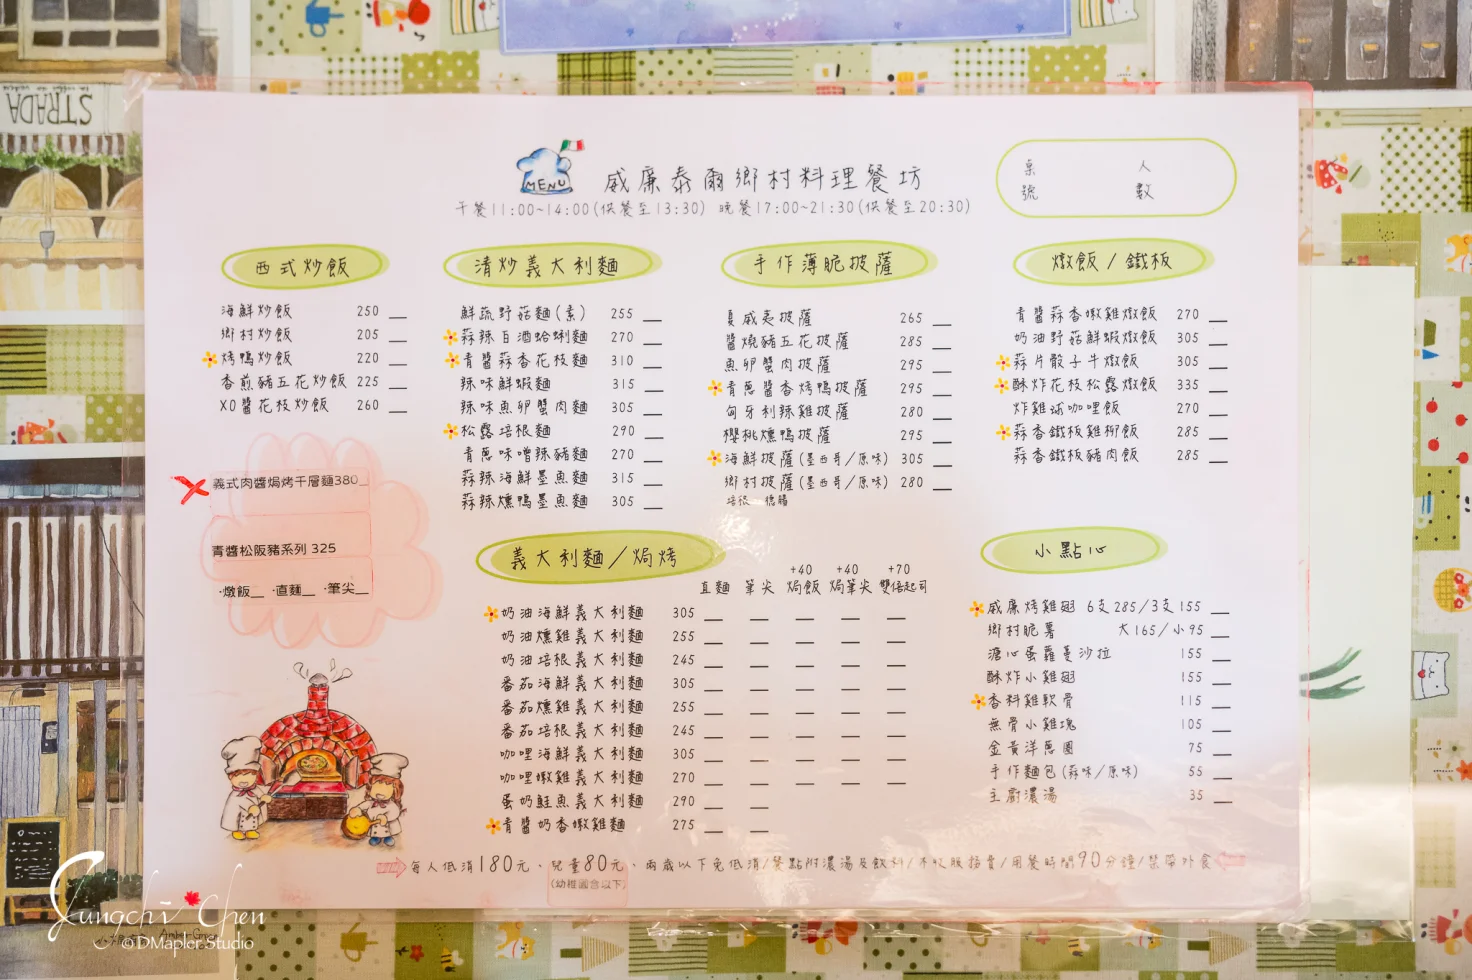 STRADA
MENU
威廉泰爾鄉村料理餐坊
午餐11:00~14:00(供餐至13:30) 晚餐17:00~21:30(供餐至20:30)
桌號
人數
西式炒飯
海鮮炒飯 250 __
鄉村炒飯 205 __
烤鴨炒飯 220 __
香煎豬五花炒飯 225 __
XO醬花枝炒飯 260 __
義式肉醬焗烤千層麵380_
青醬松阪豬系列 325
·燉飯__ ·直麵__ ·筆尖__
清炒義大利麵
鮮蔬野菇麵(素) 255 __
蒜辣白酒蛤蜊麵 270 __
青醬蒜香花枝麵 310 __
辣味鮮蝦麵 315 __
辣味魚卵蟹肉麵 305 __
松露培根麵 290 __
青蔥味噌辣豬麵 270 __
蒜辣海鮮墨魚麵 315 __
蒜辣燻鴨墨魚麵 305 __
手作薄脆披薩
夏威夷披薩 265 __
醬燒豬五花披薩 285 __
魚卵蟹肉披薩 295 __
青蔥醬香烤鴨披薩 295 __
匈牙利辣雞披薩 280 __
櫻桃燻鴨披薩 295 __
海鮮披薩(墨西哥/原味) 305 __
鄉村披薩(墨西哥/原味) 280 __
培根 德腸
燉飯/鐵板
青醬蒜香嫩雞燉飯 270 __
奶油野菇鮮蝦燉飯 305 __
蒜片骰子牛燉飯 305 __
酥炸花枝松露燉飯 335 __
炸雞球咖哩飯 270 __
蒜香鐵板雞柳飯 285 __
蒜香鐵板豬肉飯 285 __
義大利麵/焗烤
+40 +40 +70
直麵 筆尖 焗飯 焗筆尖 雙倍起司
奶油海鮮義大利麵 305 __ __ __ __ __
奶油燻雞義大利麵 255 __ __ __ __ __
奶油培根義大利麵 245 __ __ __ __ __
番茄海鮮義大利麵 305 __ __ __ __ __
番茄燻雞義大利麵 255 __ __ __ __ __
番茄培根義大利麵 245 __ __ __ __ __
咖哩海鮮義大利麵 305 __ __ __ __ __
咖哩嫩雞義大利麵 270 __ __ __ __ __
蛋奶鮭魚義大利麵 290 __ __
青醬奶香嫩雞麵 275 __ __
小點心
威廉烤雞翅 6支285/3支155 __
鄉村脆薯 大165/小95 __
溏心蛋蘿蔓沙拉 155 __
酥炸小雞翅 155 __
香料雞軟骨 115 __
無骨小雞塊 105 __
金黃洋蔥圈 75 __
手作麵包(蒜味/原味) 55 __
主廚濃湯 35 __
每人低消180元、兒童80元、兩歲以下免低消/餐點附濃湯及飲料/不收服務費/用餐時間90分鐘/禁帶外食
(幼稚園含以下)
Jungchi Chen
©DMapler Studio